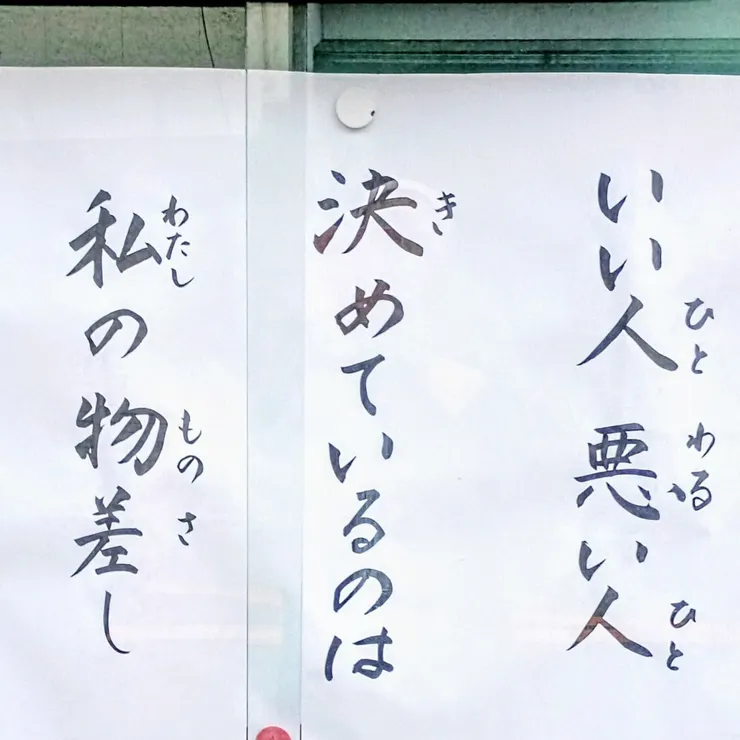 いい人 悪い人
決めているのは
私の物差し
ひと
わる
ひと
き
わたし
ものさ